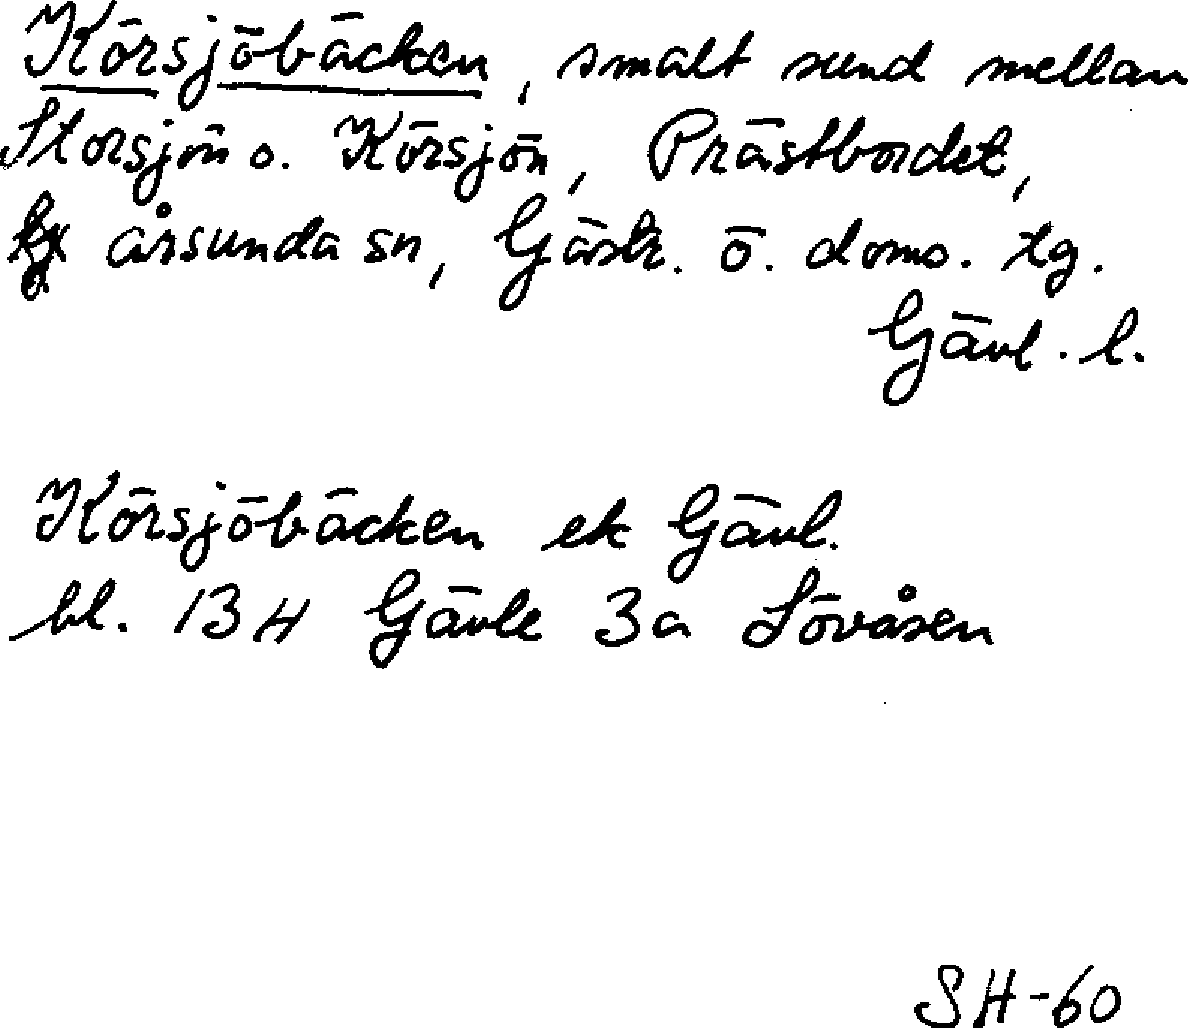 Körsjöbäcken, smalt sund mellan
Storsjön o. Körsjön, Prästbordet,
årsunda sn, Gästr. ö. doms. tg.
Gävl. l.
Körsjöbäcken ek Gävl.
bl. 13H Gävle 3a Lövåsen
SH-60